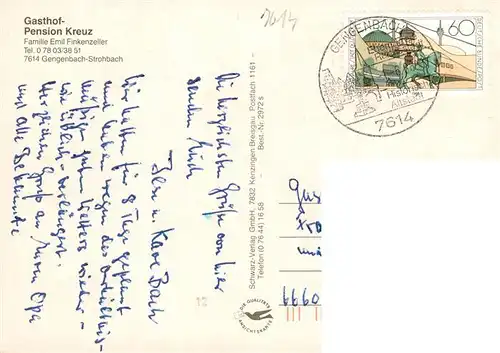 Gasthof-
Pension Kreuz
Familie Emil Finkenzeller
Tel. 0 78 03/38 51
7614 Gengenbach-Strohbach
7614
Die herzlichsten Grüße von hier
senden Euch
Ilse u. Karl Bach
Wir hatten für 8 Tage geplant
und haben wegen des
guten Wetters wieder -
wie üblich - verlängert.
Herzlichen Gruß an Euren Opa
und alle Bekannte
Schwarz-Verlag GmbH, 7832 Kenzingen Breisgau, Postfach 1161 -
Telefon (0 76 44) 16 58 Best.-Nr. 2972 s
DIE QUALITÄTS
ANSICHTSKARTE
GENGENBACH
Historische
Altstadt
7614
60
DEUTSCHE BUNDESPOST
6660